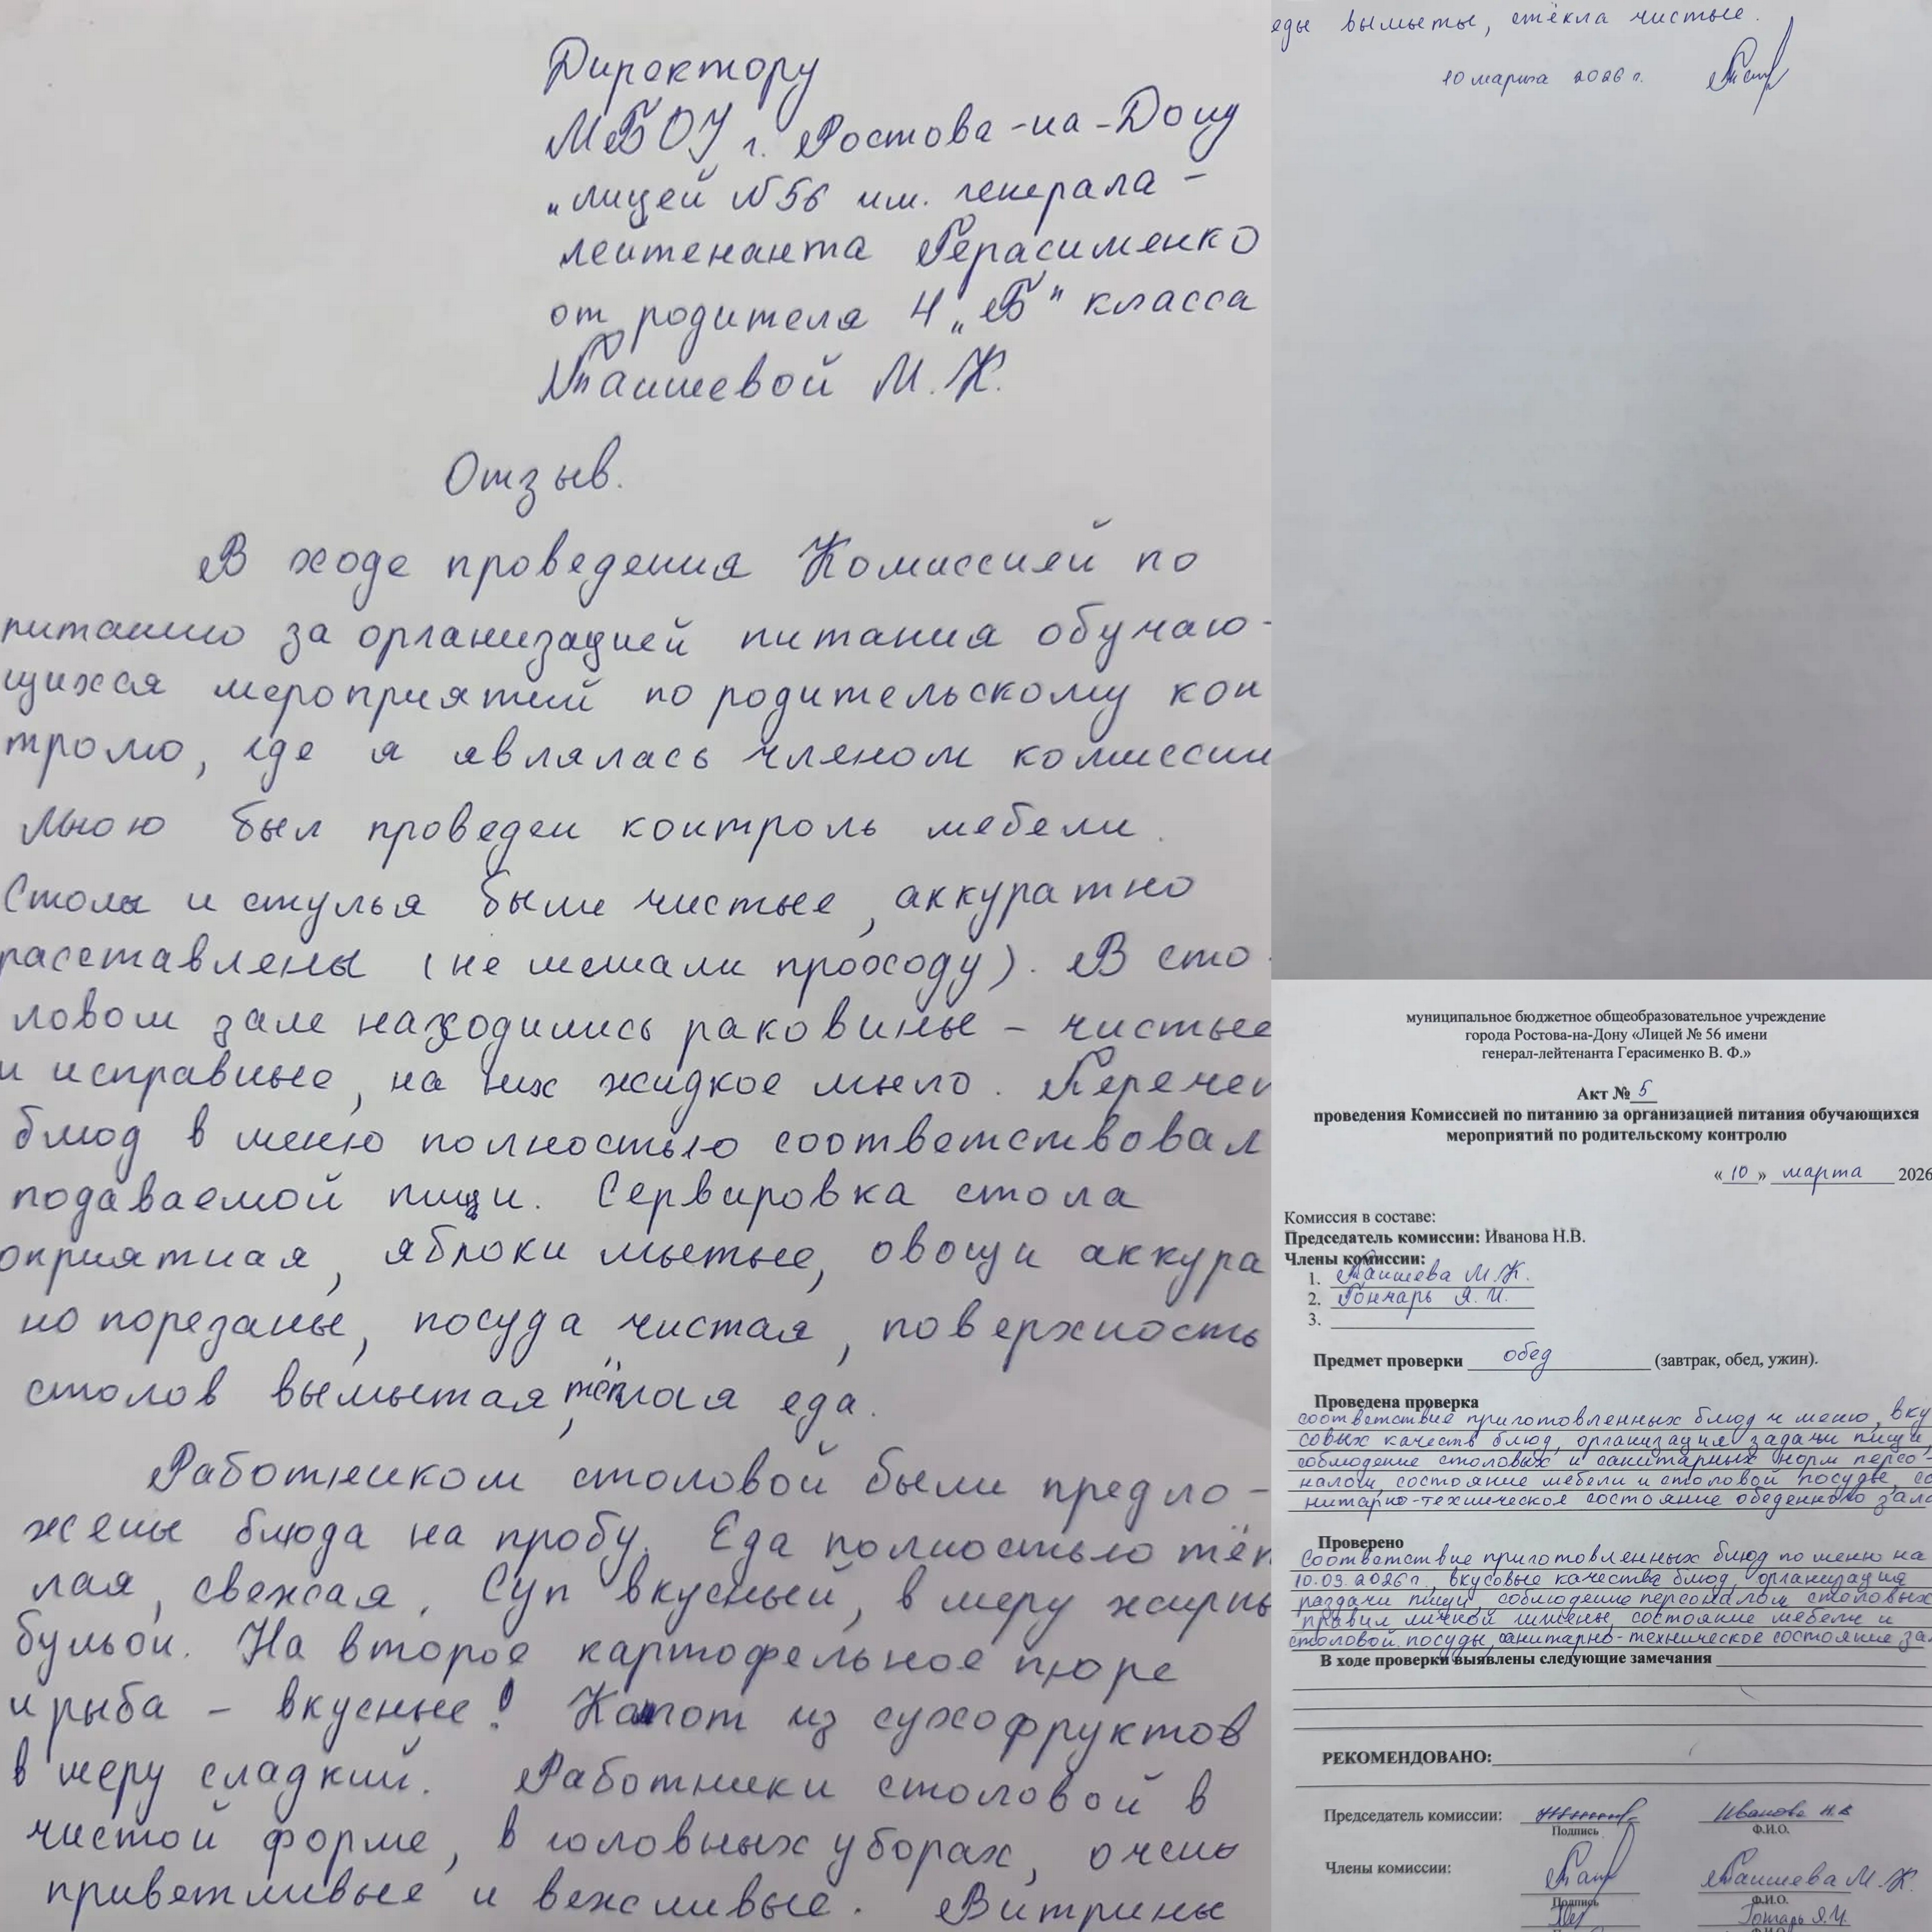 Директору
МБОУ г. Ростова-на-Дону
"лицей №56 им. генерала-
лейтенанта Герасименко
от родителя 4 "Б" класса
М.К.
Отзыв.
В ходе проведения Комиссией по
питанию за организацией питания обучаю-
щихся мероприятий по родительскому кон
тролю, где я являлась членом комиссии
Мною был проведен контроль мебели.
Столы и стулья были чистые, аккуратно
расставлены (не мешали проходу). В сто-
ловом зале находились раковины - чистые
и исправные, на них жидкое мыло. Перечен
блюд в меню полностью соответствовал
подаваемой пищи. Сервировка стола
оприятная, яблоки мытые, овощи аккура
но порезаны, посуда чистая, поверхность
столов вымытая, тёплая еда.
Работником столовой были предло-
жены блюда на пробу. Еда полностью тёп
лая, свежая. Суп вкусный, в меру жирны
бульон. На второе картофельное пюре
и рыба - вкусные! Компот из сухофруктов
в меру сладкий. Работники столовой в
чистой форме, в головных уборах, очень
приветливые и вежливые. Витрины
еды вымыты, стёкла чистые.
10 марта 2026 г.
муниципальное бюджетное общеобразовательное учреждение
города Ростова-на-Дону «Лицей № 56 имени
генерал-лейтенанта Герасименко В. Ф.»
Акт № 5
проведения Комиссией по питанию за организацией питания обучающихся
мероприятий по родительскому контролю
« 10 » марта 2026
Комиссия в составе:
Председатель комиссии: Иванова Н.В.
Члены комиссии:
1. М.К.
2. Гончарь Я.И.
3.
Предмет проверки обед (завтрак, обед, ужин).
Проведена проверка
соответствие приготовленных блюд и меню, вку
совых качеств блюд, организация задачи пищи,
соблюдение столовых и санитарных норм персо-
налом, состояние мебели и столовой посуды, са
нитарно-техническое состояние обеденного зала
Проверено
Соответствие приготовленных блюд по меню на
10.03.2026г., вкусовые качества блюд, организация
раздачи пищи, соблюдение персоналом столовых
правил личной гигиены, состояние мебели и
столовой посуды, санитарно-техническое состояние за
В ходе проверки выявлены следующие замечания
РЕКОМЕНДОВАНО:
Председатель комиссии: Иванова Н.В
Подпись Ф.И.О.
Члены комиссии: М.К.
Подпись Ф.И.О.
Гончарь Я.И.